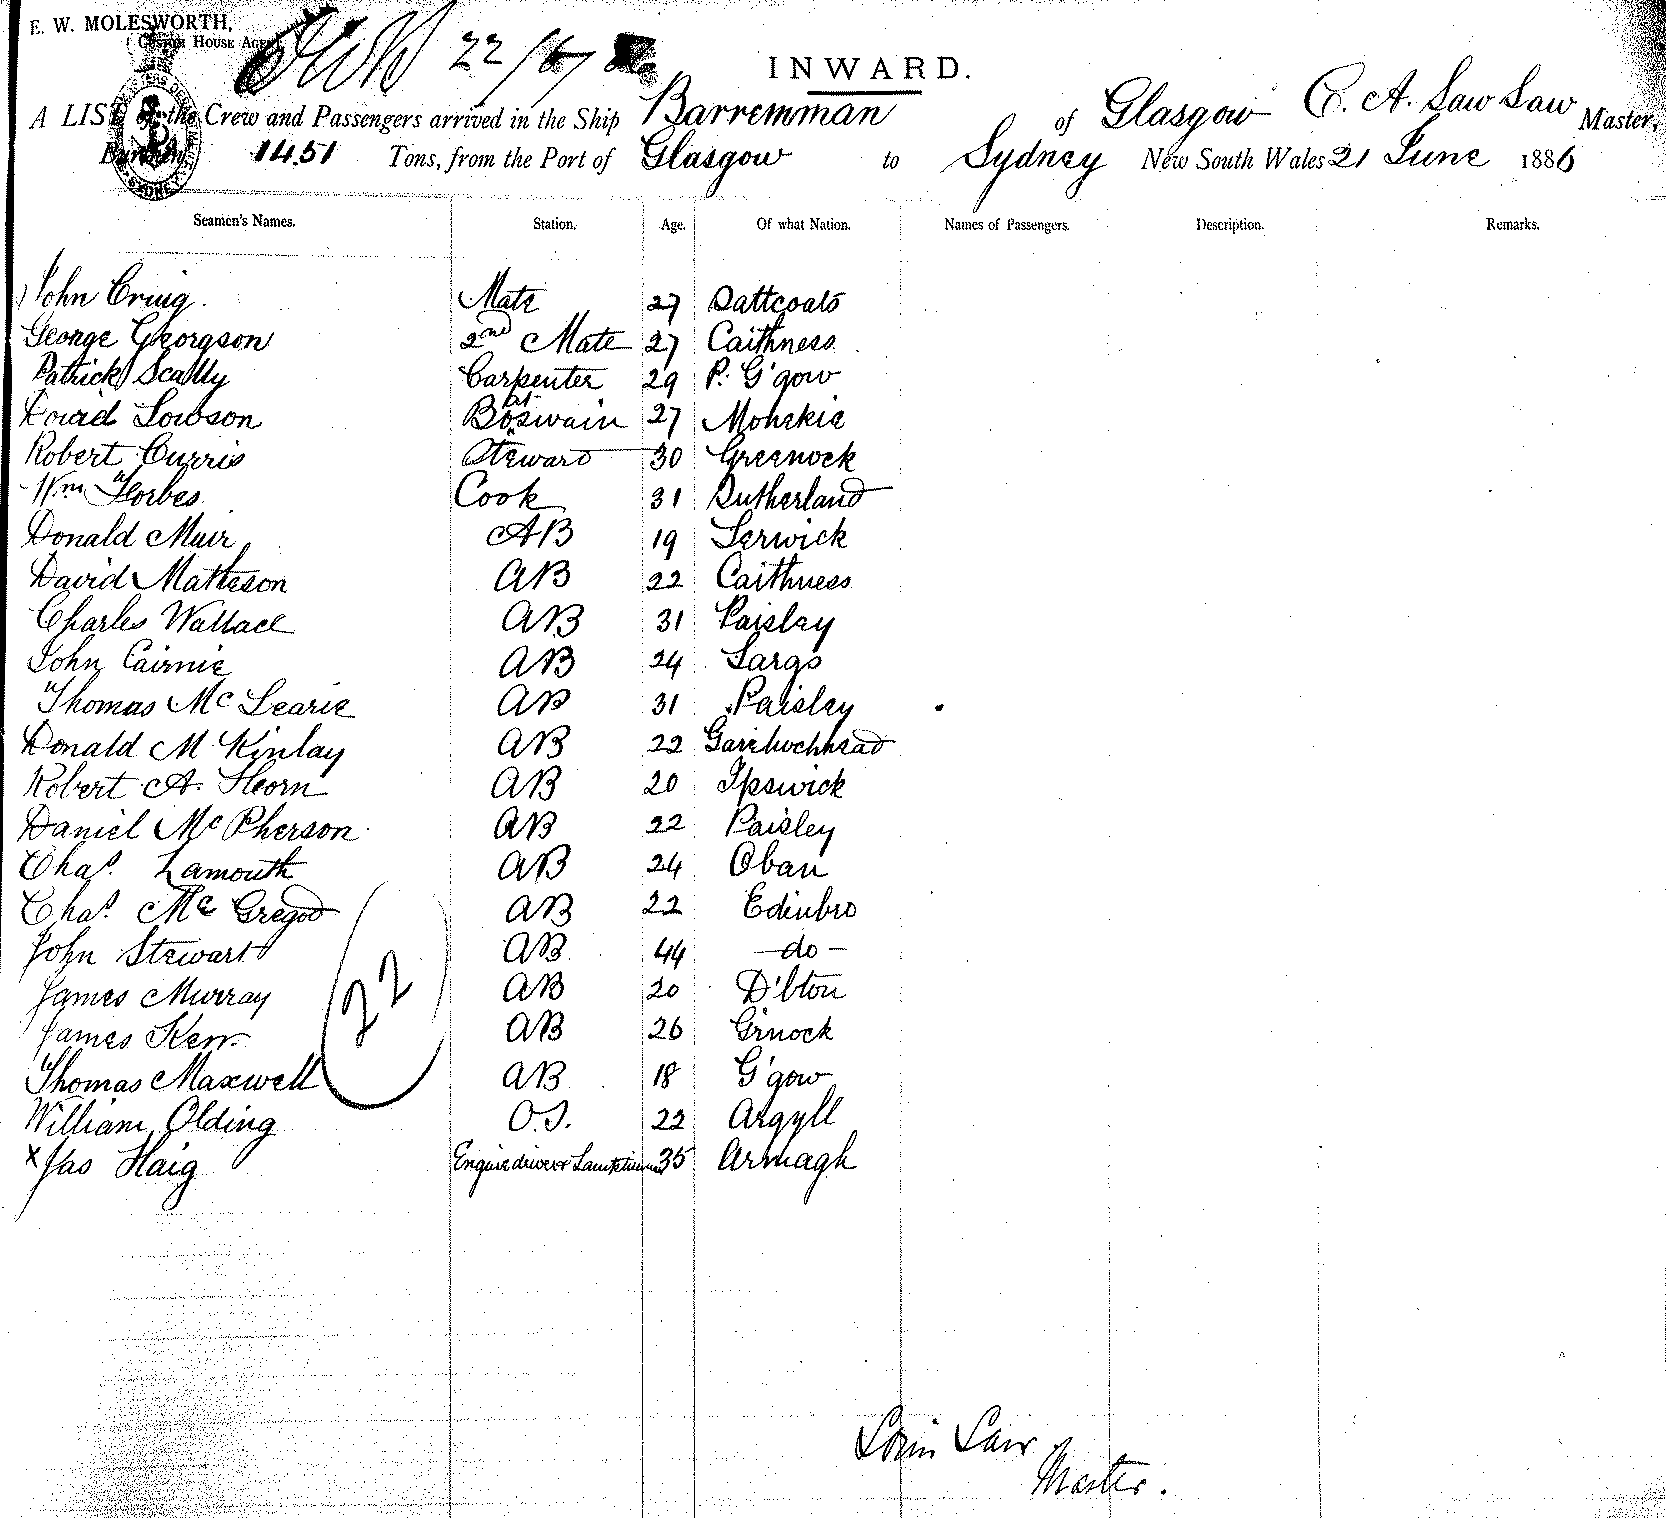 E. W. MOLESWORTH,
Custom House Agent
22/6/86
INWARD.
A LIST of the Crew and Passengers arrived in the Ship Barremman of Glasgow C. A. Law Law Master,
Burthen 1451 Tons, from the Port of Glasgow to Sydney New South Wales 21 June 1886
Seamen's Names. Station. Age. Of what Nation. Names of Passengers. Description. Remarks.
John Craig. Mate 27 Saltcoats
George Georgson 2nd Mate 27 Caithness
Patrick Scally Carpenter 29 P. G'gow
David Lowson Boswain 27 Monikie
Robert Currie Steward 30 Greenock
Wm Forbes Cook 31 Sutherland
Donald Muir AB 19 Lerwick
David Matheson AB 22 Caithness
Charles Wallace AB 31 Paisley
John Cairnie AB 24 Largs
Thomas Mc Learie AB 31 Paisley
Donald M Kinlay AB 22 Garelochhead
Robert A. Hearn AB 20 Ipswick
Daniel Mc Pherson AB 22 Paisley
Chas. Lamouth AB 24 Oban
Chas. Mc Gregor AB 22 Edinbro
John Stewart AB 44 - do -
James Murray AB 20 D'bton
James Kerr AB 26 Grnock
Thomas Maxwell AB 18 G'gow
22
William Olding O.S. 22 Argyll
x Jas Haig Enginedriver 35 Armagh
Law
Master.